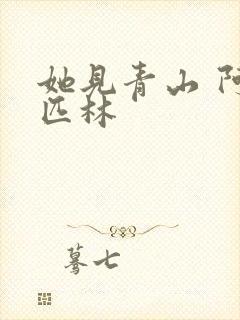 她见青山 阿
匹林
蓦七